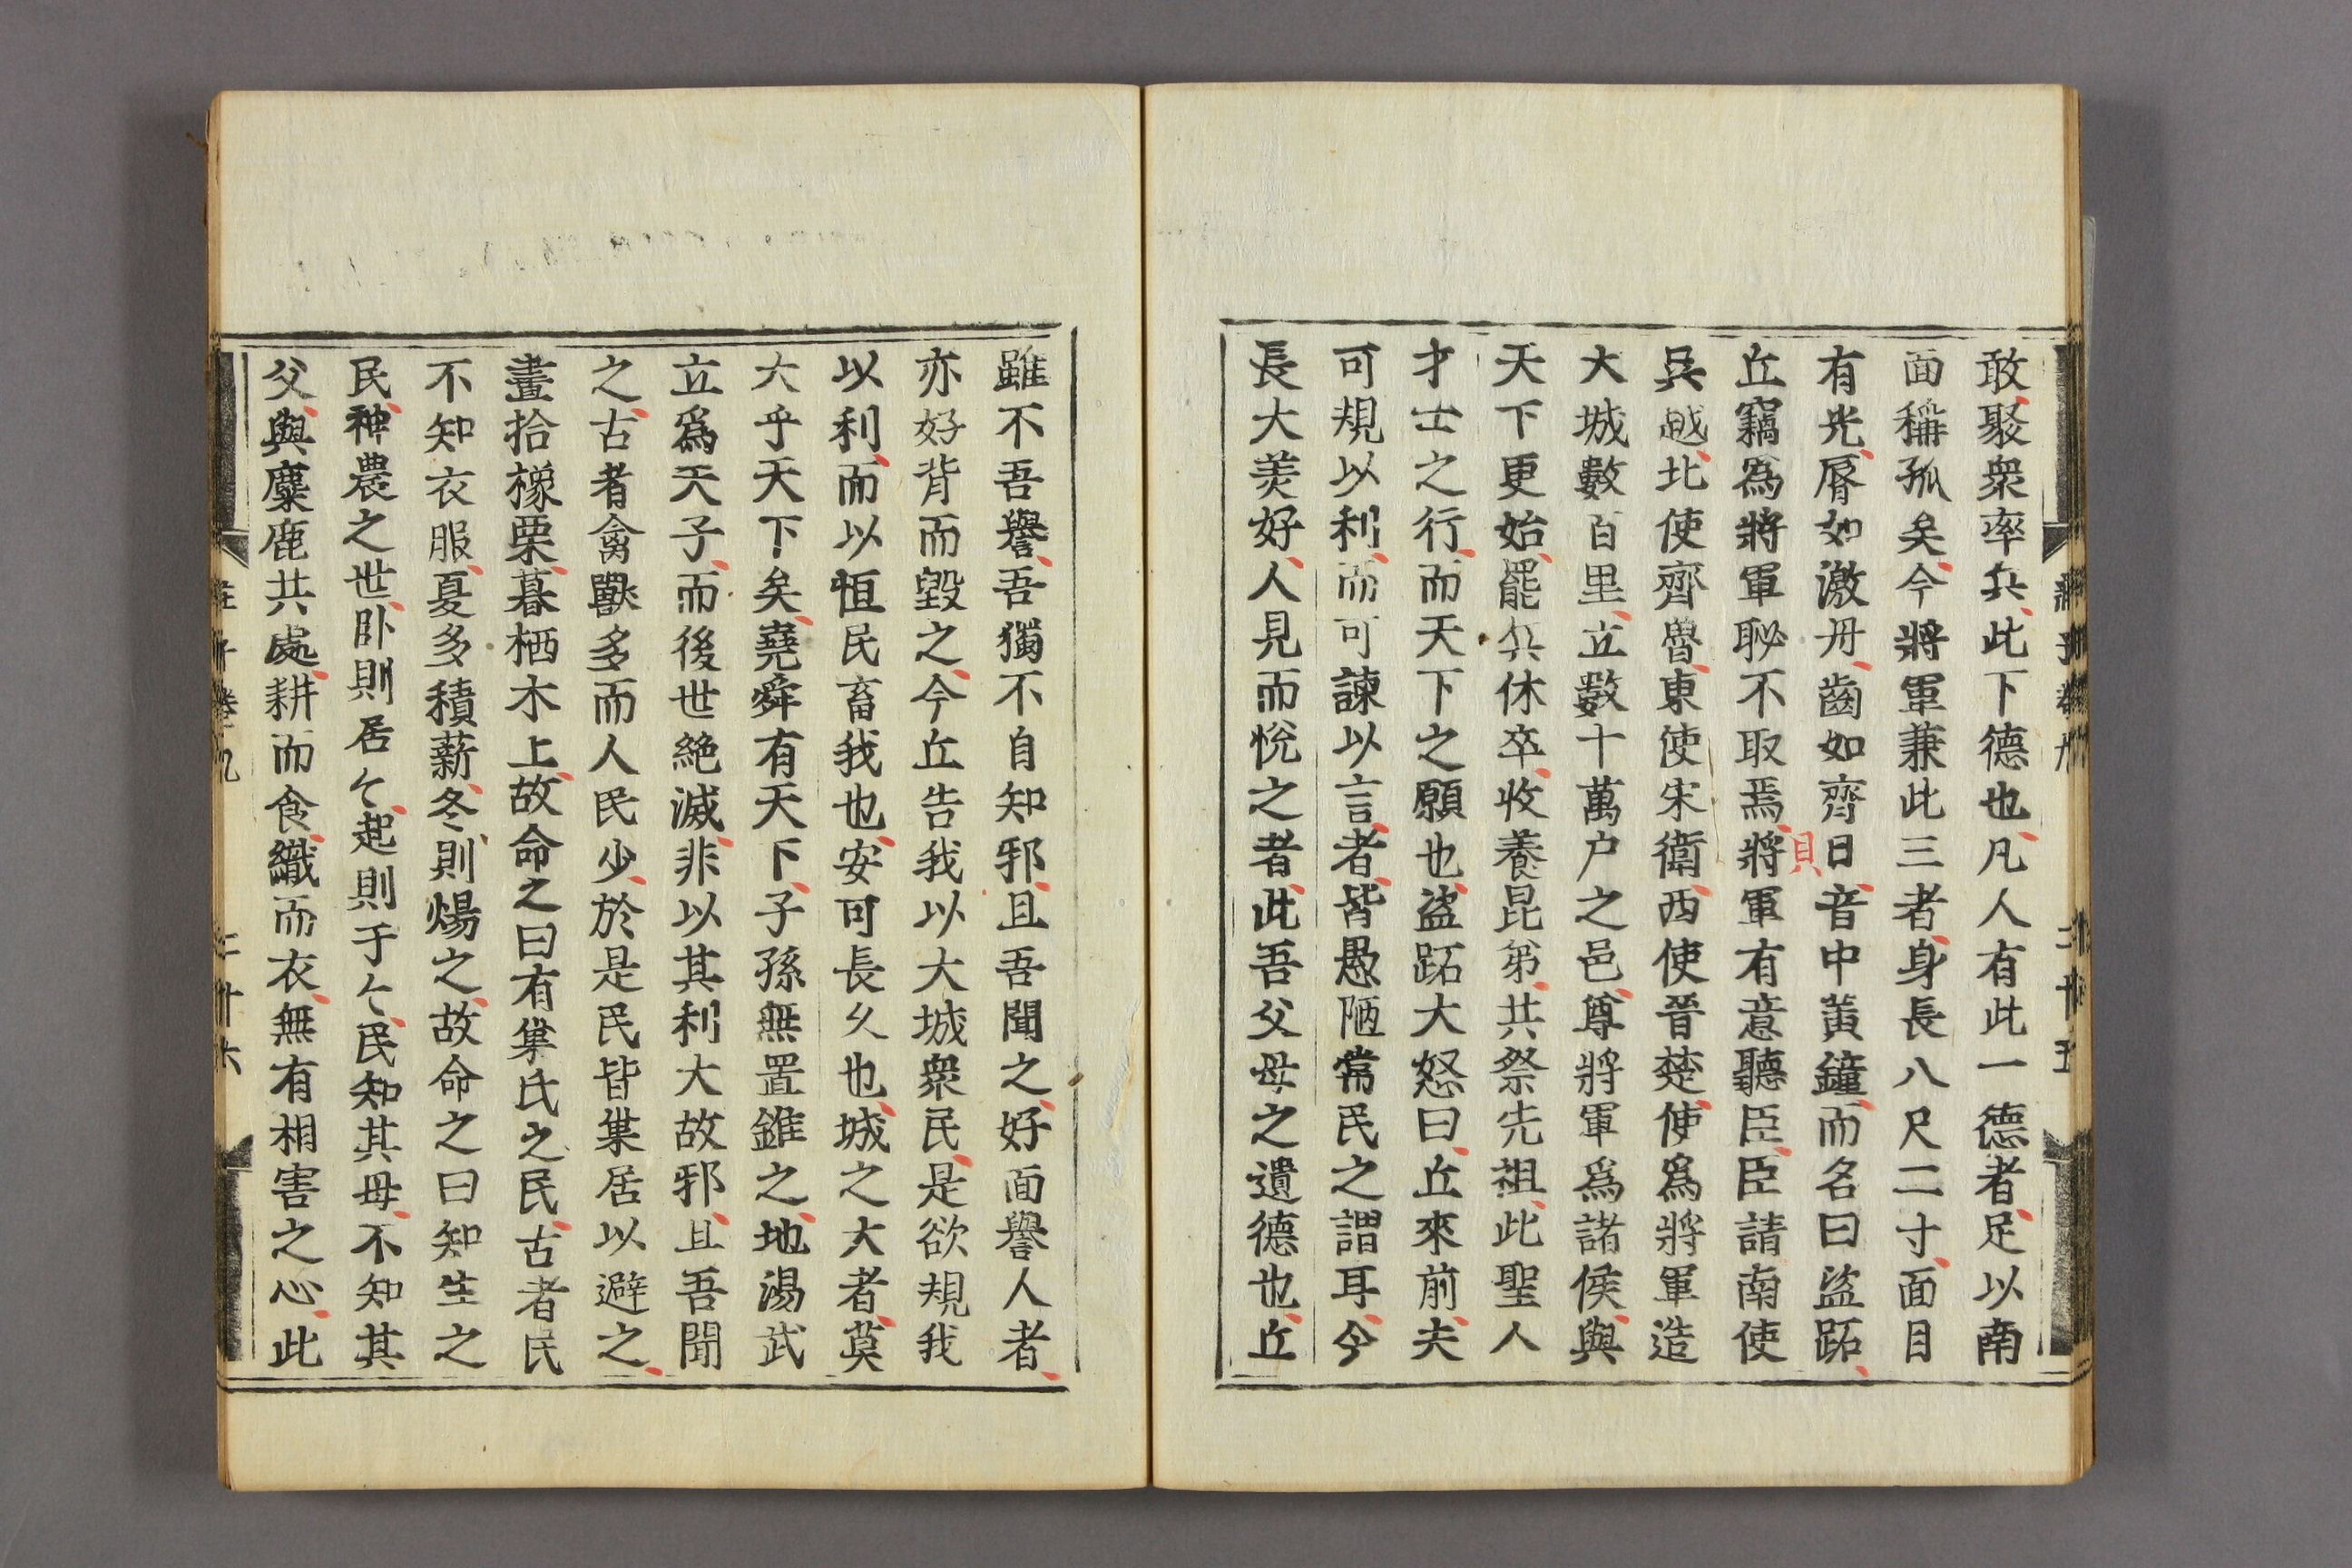 敢聚衆率兵此下德也凡人有此一德者足以南
面稱孤矣今將軍兼此三者身長八尺二寸面目
有光脣如激丹齒如齊日音中黃鐘而名曰盜跖
貝
丘竊爲將軍恥不取焉將軍有意聽臣臣請南使
吳越北使齊魯東使宋衛西使晉楚使爲將軍造
大城數百里立數十萬户之邑尊將軍爲諸侯與
天下更始罷兵休卒收養昆弟共祭先祖此聖人
才士之行而天下之願也盜跖大怒曰丘來前夫
可規以利而可諫以言者皆愚陋常民之謂耳今
長大美好人見而悅之者此吾父母之遺德也丘
雖不吾譽吾獨不自知邪且吾聞之好面譽人者
亦好背而毀之今丘告我以大城衆民是欲規我
以利而以恒民畜我也安可長久也城之大者莫
大乎天下矣堯舜有天下子孫無置錐之地湯武
立爲天子而後世絶滅非以其利大故邪且吾聞
之古者禽獸多而人民少於是民皆巢居以避之
晝拾橡栗暮栖木上故命之曰有巢氏之民古者民
不知衣服夏多積薪冬則煬之故命之曰知生之
民神農之世卧則居々起則于々民知其母不知其
父與麋鹿共處耕而食織而衣無有相害之心此
莊子卷九 二十六